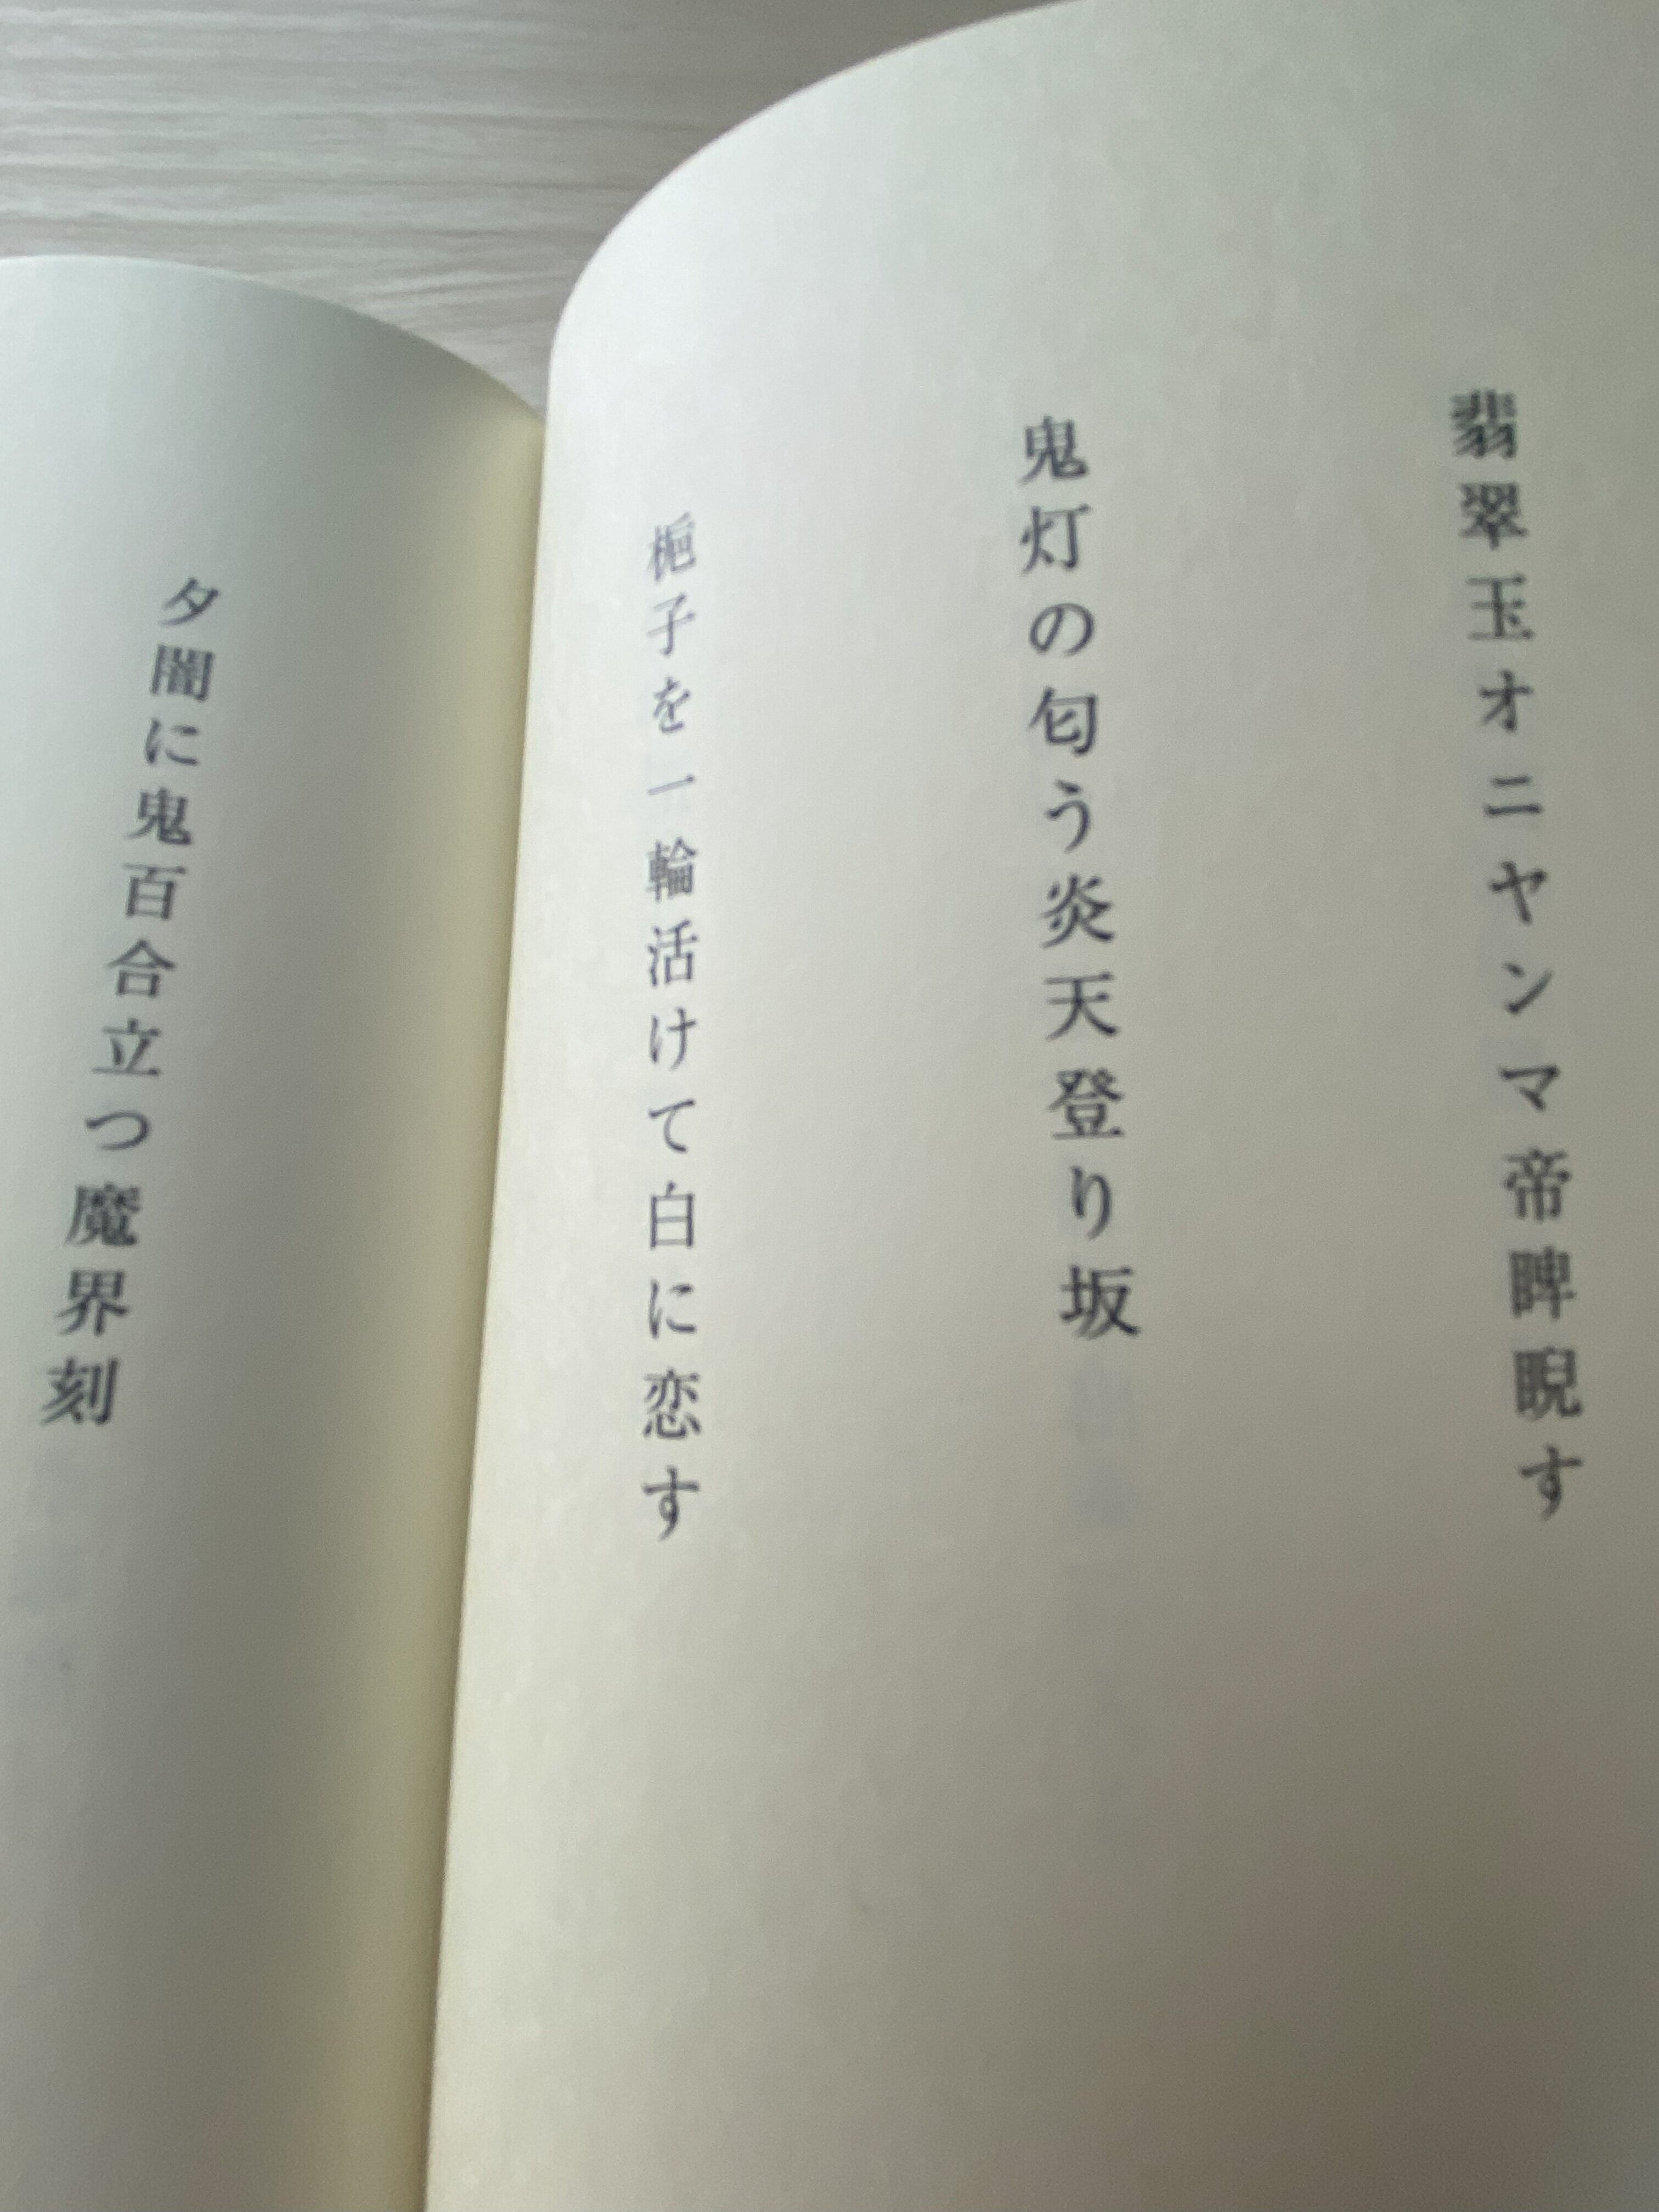 翡翠玉オニヤンマ帝睥睨す
鬼灯の匂う炎天登り坂
梔子を一輪活けて白に恋す
夕闇に鬼百合立つ魔界刻